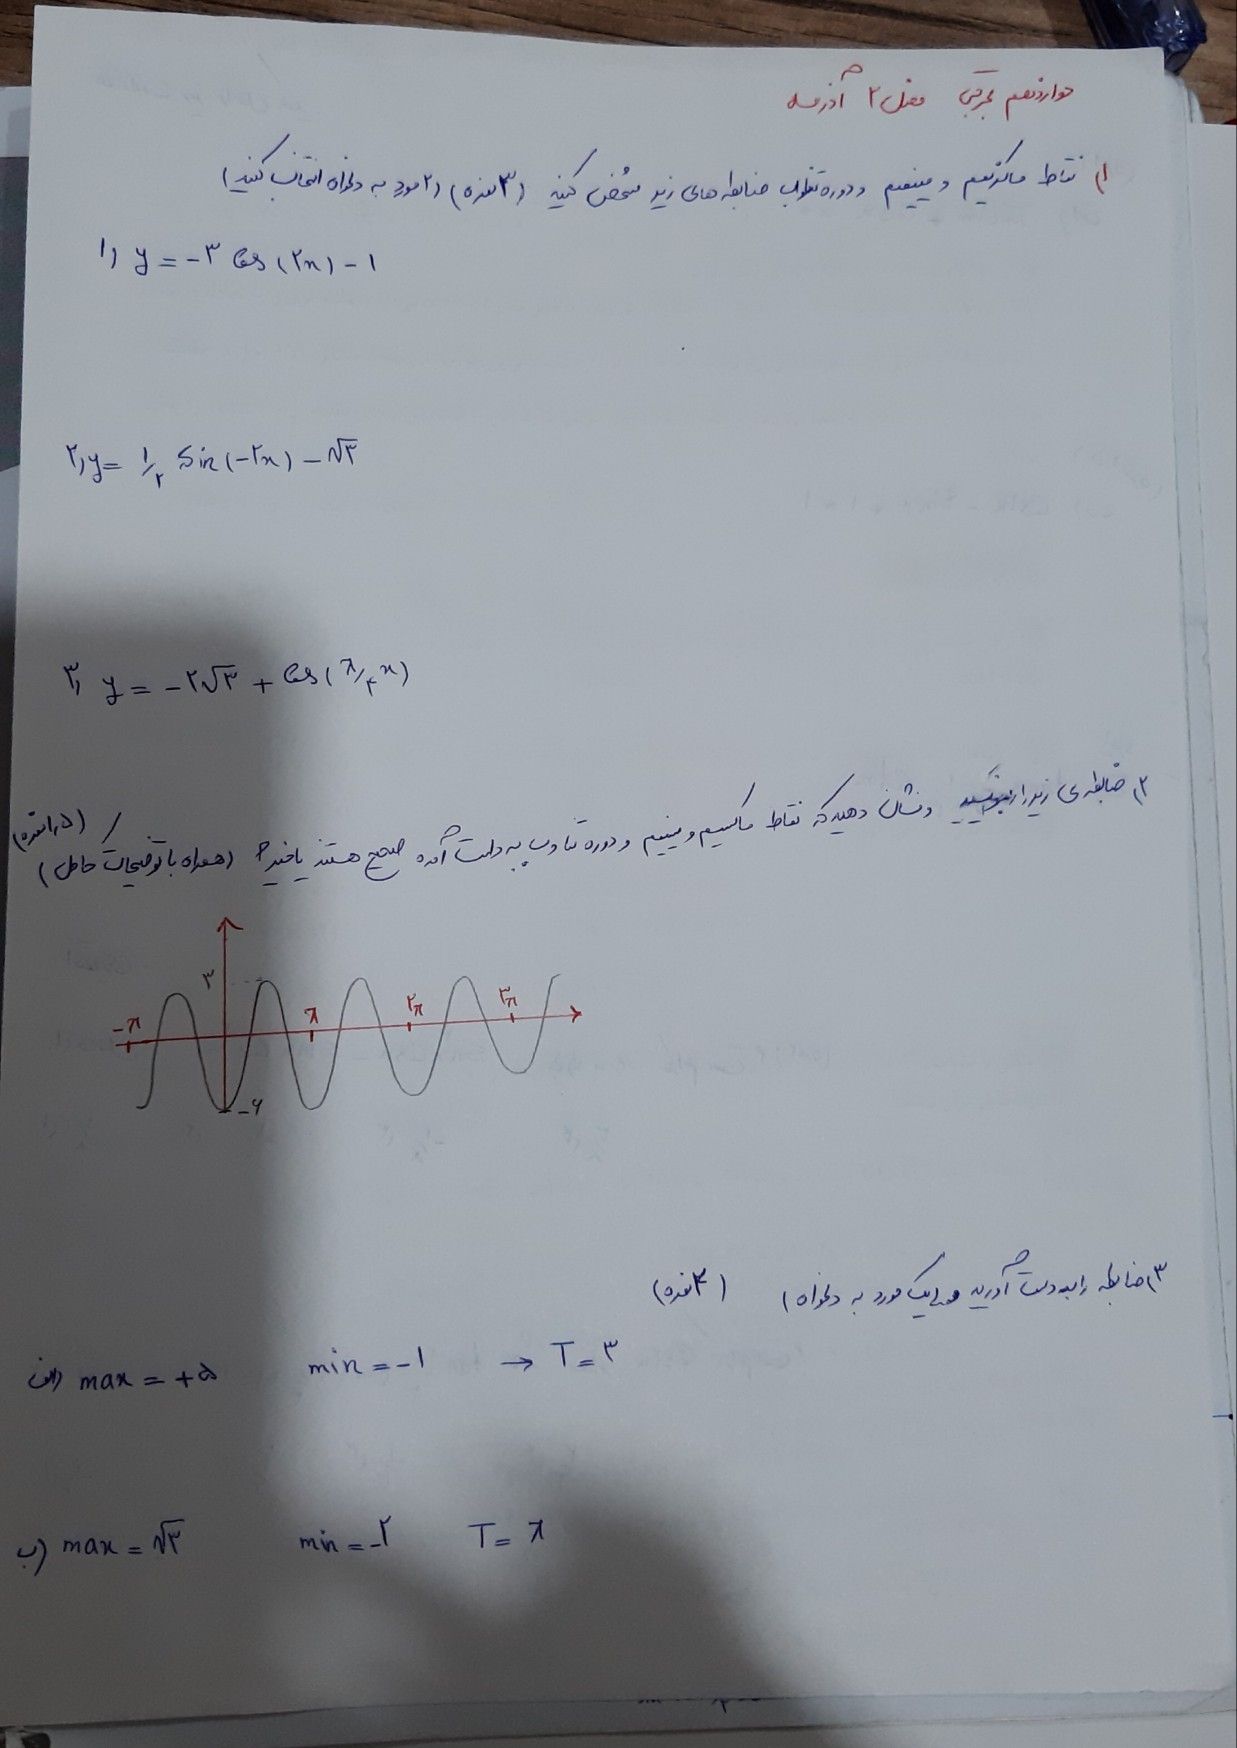 دوازدهم تجربی فصل ۲ آذرماه
۱) نقاط ماکزیمم و مینیمم و دوره تناوب ضابطه های زیر مشخص کنید (۳نمره) (۲مورد به دلخواه انتخاب کنید)
۱) y = -۳ Cos (۲x) - ۱
۲) y = ۱/۲ Sin (-۲x) - √۳
۳) y = -۲√۳ + Cos (π/۲ x)
۲) ضابطه ی زیر را بنویسید و نشان دهید که نقاط ماکسیمم و مینیمم و دوره تناوب به دست آمده صحیح هستند یا خیر؟ (همراه با توضیحات کامل) (۱,۵نمره)
۳
-π π ۲π ۳π
-۴
۳) ضابطه را به دست آورید (یک مورد به دلخواه) (۲نمره)
الف) max = +۵ min = -۱ → T = ۳
ب) max = √۳ min = -۲ T = π